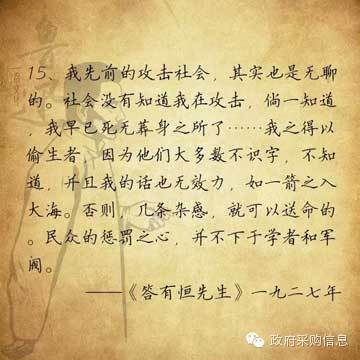 15、我先前的攻击社会，其实也是无聊
的。社会没有知道我在攻击，倘一知道
，我早已死无葬身之所了……我之得以
偷生者，因为他们大多数不识字，不知
道，并且我的话也无效力，如一箭之入
大海。否则，几条杂感，就可以送命的
。民众的惩罚之心，并不下于学者和军
阀。
——《答有恒先生》一九二七年
政府采购信息